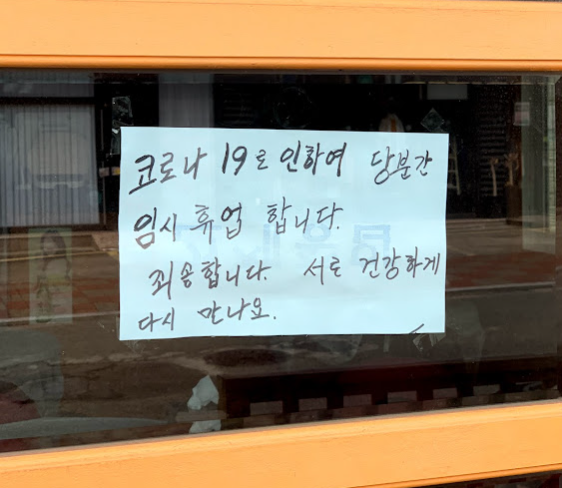 코로나 19로 인하여 당분간
임시 휴업 합니다.
죄송합니다. 서로 건강하게
다시 만나요.